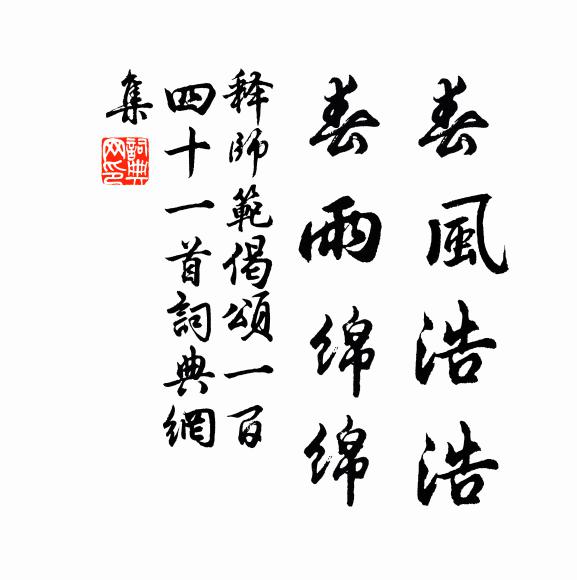 春風浩浩
春雨綿綿
释師範偈頌一百
四十一首詞典網
集
詞典
网印